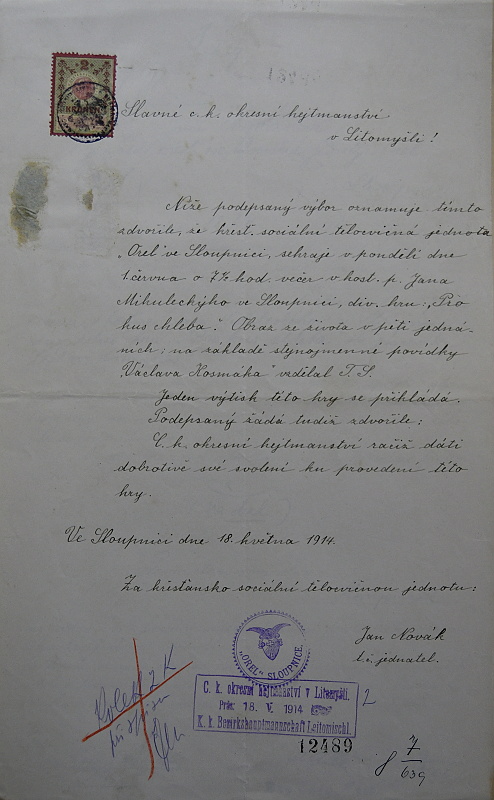 2
Slavné c. k. okresní hejtmanství
v Litomyšli!
Níže podepsaný výbor oznamuje tímto
zdvořile, že křest. sociální tělocvičná jednota
„Orel" ve Sloupnici, sehraje v pondělí dne
1. června o 7½ hod. večer v host. p. Jana
Mikuleckýho ve Sloupnici, div. hru: „Pro
kus chleba." Obraz ze života v pěti jedná-
ních; na základě stejnojmenné povídky
„Václava Kosmáka" vzdělal T. S.
Jeden výtisk této hry se přikládá.
Podepsaný žádá tudíž zdvořile:
C. k. okresní hejtmanství račiž dáti
dobrotivě své svolení ku provedení této
hry.
Ve Sloupnici dne 18. května 1914.
Za křesťansko sociální tělocvičnou jednotu:
„OREL" SLOUPNICE.
Jan Novák
t. č. jednatel.
C. k. okresní hejtmanství v Litomyšli.
Präs: 18. V. 1914
K. k. Bezirkshauptmannschaft Leitomischl.
2
12489
Kolek 2 K
8 7/639